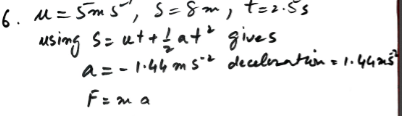 6. u = 5 m s⁻¹, s = 8 m, t = 2.5 s
using s = ut + ½at² gives
a = -1.44 m s⁻² deceleration = 1.44 m s⁻²
F = m a